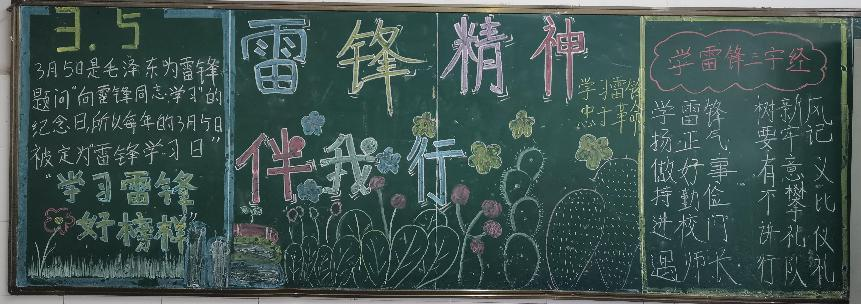 3.5
3月5日是毛泽东为雷锋
题词"向雷锋同志学习"的
纪念日,所以每年的3月5日
被定为"雷锋学习日"
"学习雷锋
好榜样"
雷锋精神
伴我行
学习雷锋
忠于革命
学雷锋三字经
学雷锋
扬正气
做好事
持勤俭
进校门
遇师长
树新风
要牢记
有意义
不攀比
讲礼仪
行队礼